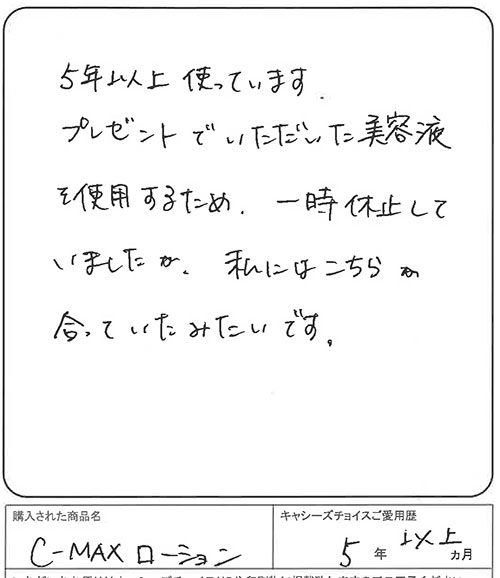 5年以上 使っています.
プレゼントでいただいた美容液
を使用するため、一時休止して
いましたが、私にはこちらが
合っていたみたいです。
購入された商品名
キャシーズチョイスご愛用歴
C-MAX ローション
5 年 以上 ヵ月